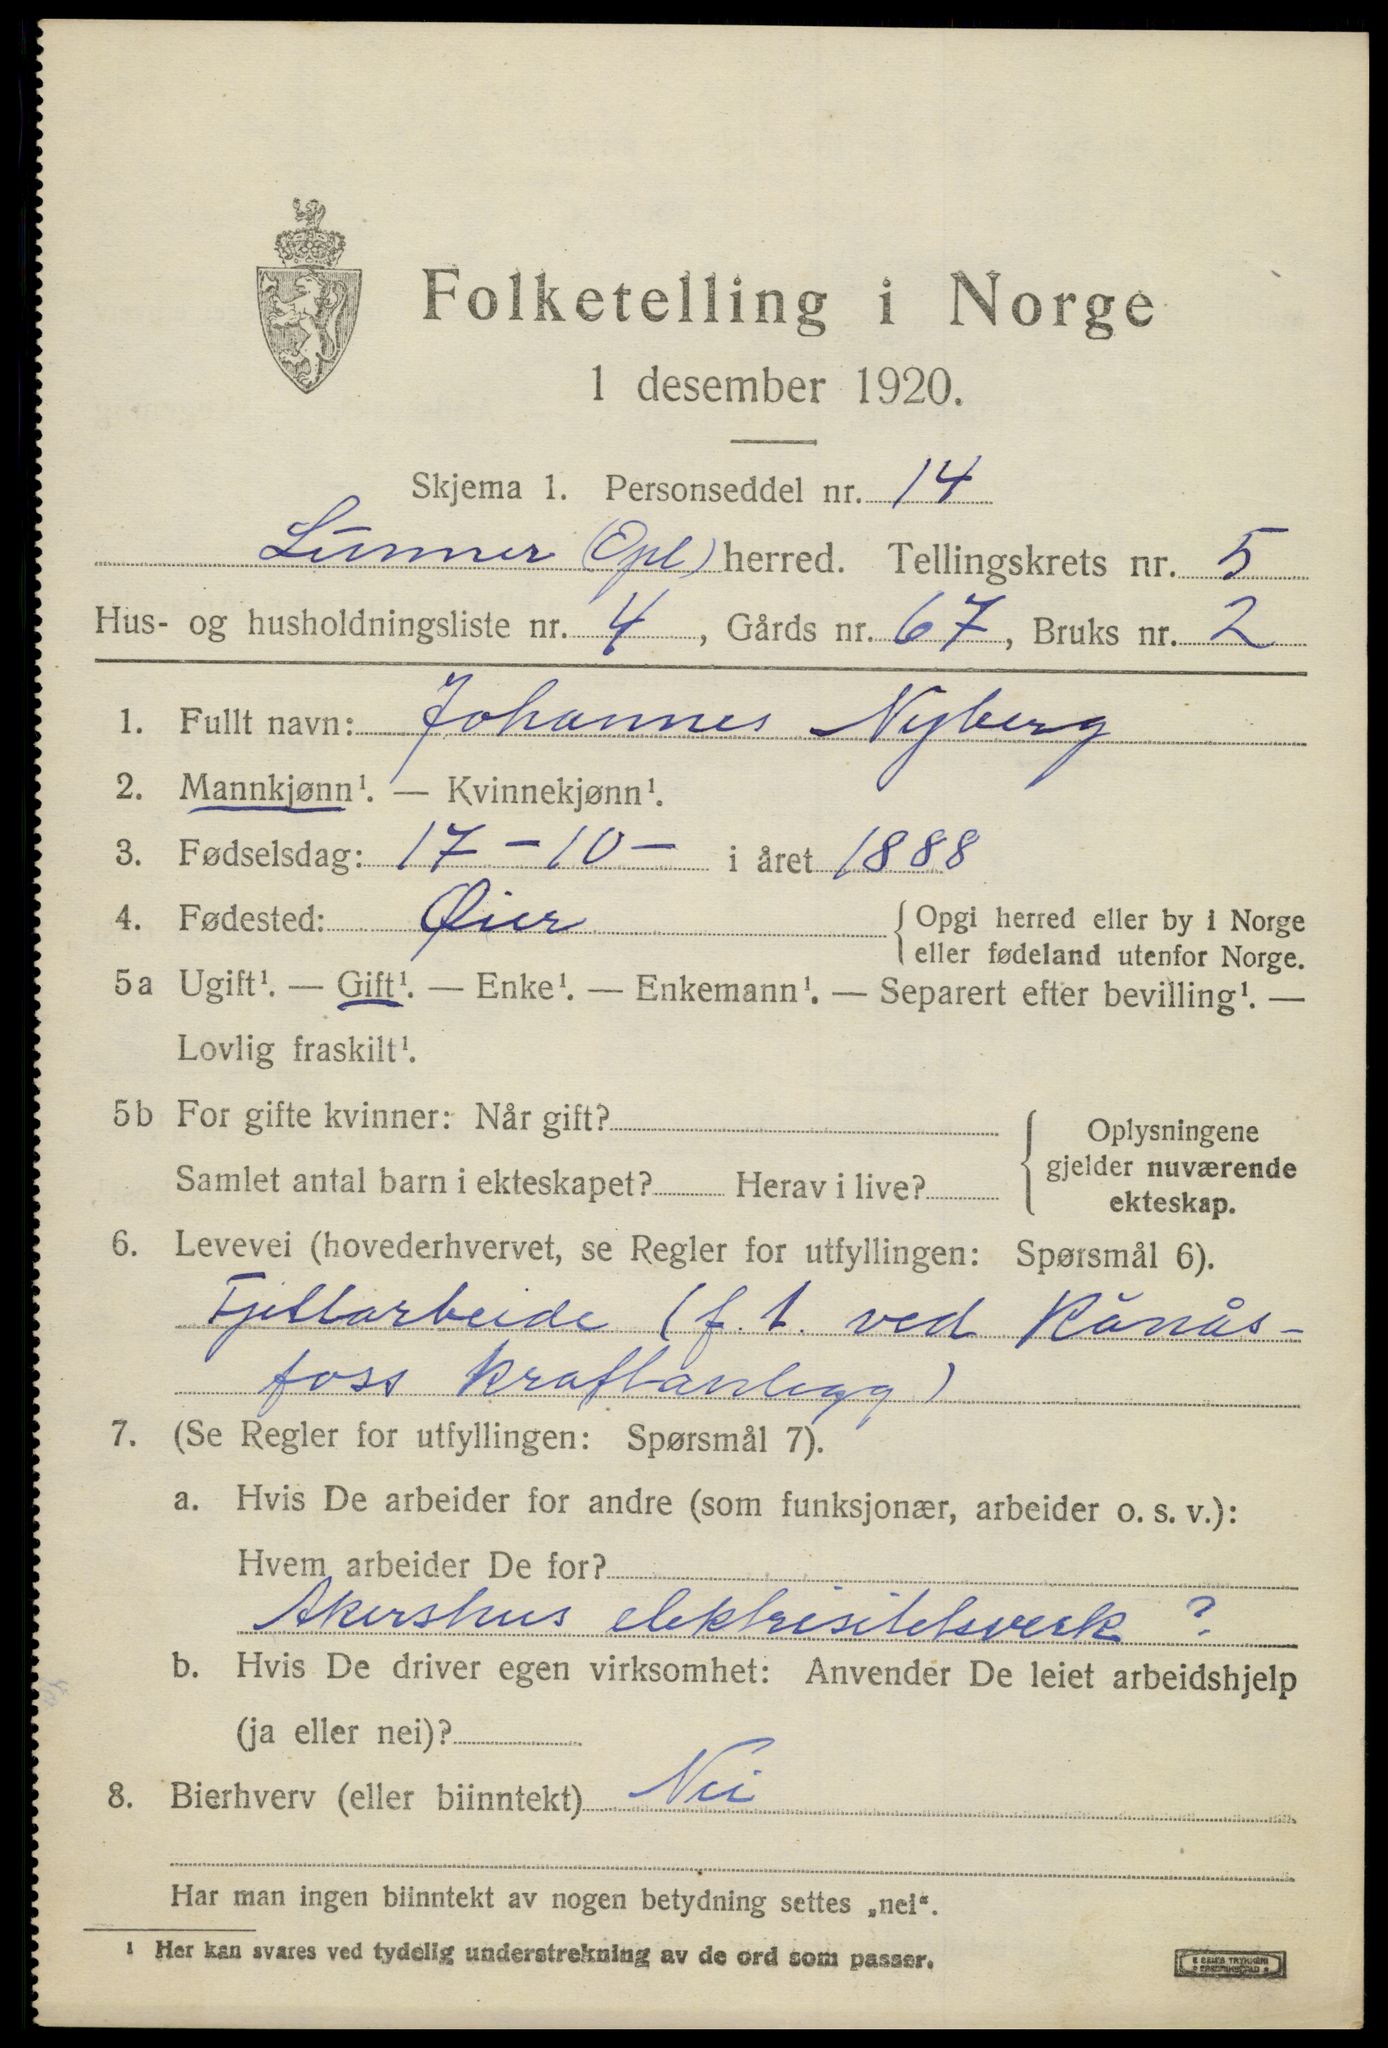 Folketelling i Norge
1 desember 1920.
Skjema 1. Personseddel nr. 14
Lunner (Opl) herred. Tellingskrets nr. 5
Hus- og husholdningsliste nr. 4, Gårds nr. 67, Bruks nr. 2
1. Fullt navn: Johannes Nyberg
2. Mannkjønn¹. — Kvinnekjønn¹.
3. Fødselsdag: 17 - 10 - i året 1888
4. Fødested: Øier { Opgi herred eller by i Norge
eller fødeland utenfor Norge.
5a Ugift¹. — Gift¹. — Enke¹. — Enkemann¹. — Separert efter bevilling¹. —
Lovlig fraskilt¹.
5b For gifte kvinner: Når gift?
Samlet antal barn i ekteskapet? Herav i live?
{ Oplysningene
gjelder nuværende
ekteskap.
6. Levevei (hovederhvervet, se Regler for utfyllingen: Spørsmål 6).
Fjellarbeide (f. t. ved Rånås-
foss kraftanlegg)
7. (Se Regler for utfyllingen: Spørsmål 7).
a. Hvis De arbeider for andre (som funksjonær, arbeider o. s. v.):
Hvem arbeider De for?
Akershus elektrisitetsverk ?
b. Hvis De driver egen virksomhet: Anvender De leiet arbeidshjelp
(ja eller nei)?
8. Bierhverv (eller biinntekt) Nei
Har man ingen biinntekt av nogen betydning settes „nei“.
¹ Her kan svares ved tydelig understrekning av de ord som passer.